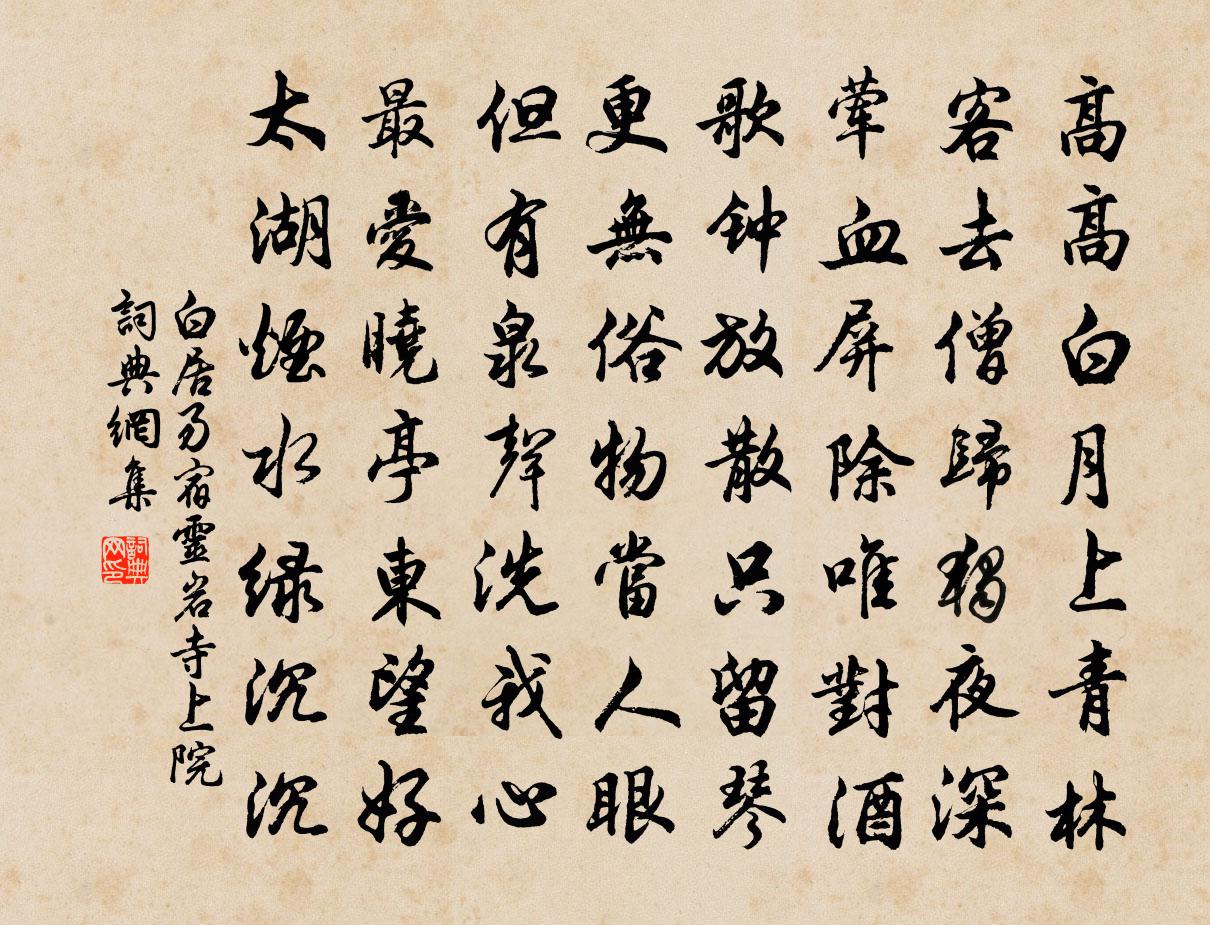 高高白月上青林
客去僧歸獨夜深
葷血屏除唯對酒
歌钟放散只留琴
更無俗物當人眼
但有泉聲洗我心
最愛曉亭東望好
太湖煙水绿沉沉
白居易宿靈岩寺上院
詞典網集
詞典网印